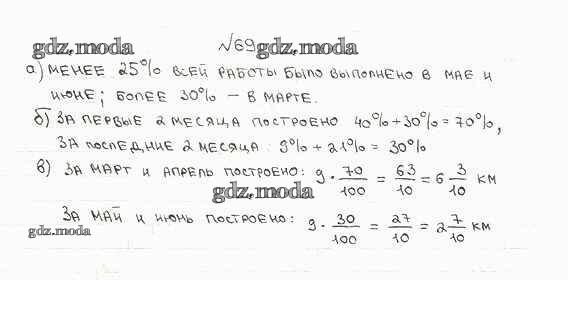 gdz.moda №69 gdz.moda
а) МЕНЕЕ 25% ВСЕЙ РАБОТЫ БЫЛО ВЫПОЛНЕНО В МАЕ И
ИЮНЕ; БОЛЕЕ 30% – В МАРТЕ.
б) ЗА ПЕРВЫЕ 2 МЕСЯЦА ПОСТРОЕНО 40%+30%=70%,
ЗА ПОСЛЕДНИЕ 2 МЕСЯЦА: 9% + 21% = 30%
в) ЗА МАРТ И АПРЕЛЬ ПОСТРОЕНО: 9 · 70/100 = 63/10 = 6 3/10 КМ
gdz.moda
ЗА МАЙ И ИЮНЬ ПОСТРОЕНО: 9 · 30/100 = 27/10 = 2 7/10 КМ
gdz.moda